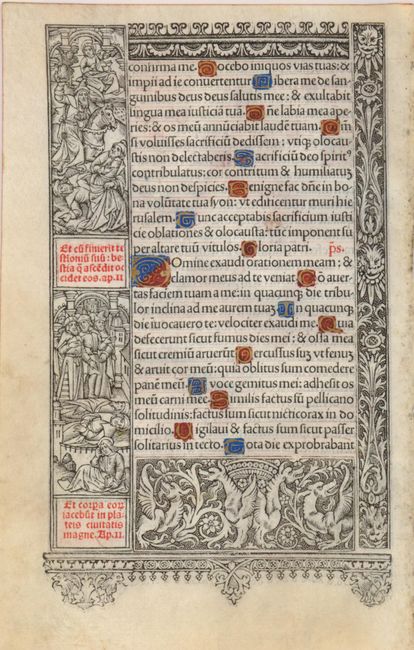 confirma me. Docebo iniquos vias tuas: &
impii ad te conuertentur. Libera me de san-
guinibus deus deus salutis mee: & exultabit
lingua mea iusticiā tuā. Dñe labia mea ape-
ries: & os meū annūciabit laudē tuam. Qm̄
si voluisses sacrificiū dedissem: vtiqȝ olocau-
stis non delectaberis. Sacrificiū deo spiritꝰ
cōtribulatus: cor contritum & humiliatū
deus non despicies. Benigne fac dñe in bo-
na volūtate tua syon: vt edificentur muri hie-
rusalem. Tunc acceptabis sacrificium iusti-
cie oblationes & olocausta: tūc imponent su-
per altare tuū vitulos. Gloria patri. ps.
Domine exaudi orationem meam: &
clamor meus ad te veniat. Nō auer-
tas faciem tuam a me: in quacunqȝ die tribu-
lor inclina ad me aurem tuaȝ. In quacunqȝ
die inuocauero te: velociter exaudi me. Quia
defecerunt sicut fumus dies mei: & ossa mea
sicut cremiū aruerūt. Percussus suȝ vt fenuȝ
& aruit cor meū: quia oblitus sum comedere
panē meū. A voce gemitus mei: adhesit os
meū carni mee. Similis factus sū pellicano
solitudinis: factus sum sicut nicticorax in do-
micilio. Vigilaui & factus sum sicut passer
solitarius in tecto. Tota die exprobrabant
Et cū finierit te
stioniū suū: be-
stia q̄ ascēdit oc
cidet eos. ap. 11
Et corpa eoꝝ
iacebūt in pla-
teis ciuitatis
magne. Ap. 11.